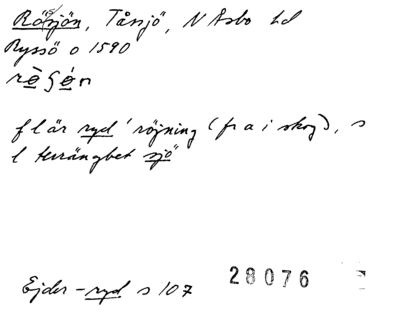 Rösjön, Tåssjö, N Åsbo hd
Ryssö o 1590
f l är ryd 'röjning (fr a i skog), s
l terrängbet sjö"
Ejder-ryd s 107 28076